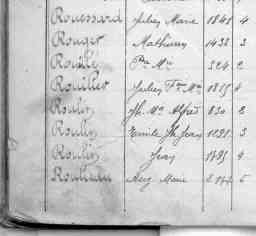 Rouessard Jules Marie 1848 4
Rouger Mathurin 1438 3
Rouillé Pre Mie 324 2
Rouiller Jules Fs Mie 1815 4
Roulin Jh. Mie Alfred 830 2
Roulin Emile Jh Jean 1291 3
Roulin Jean 1795 4
Roulleau Aug. Marie 5